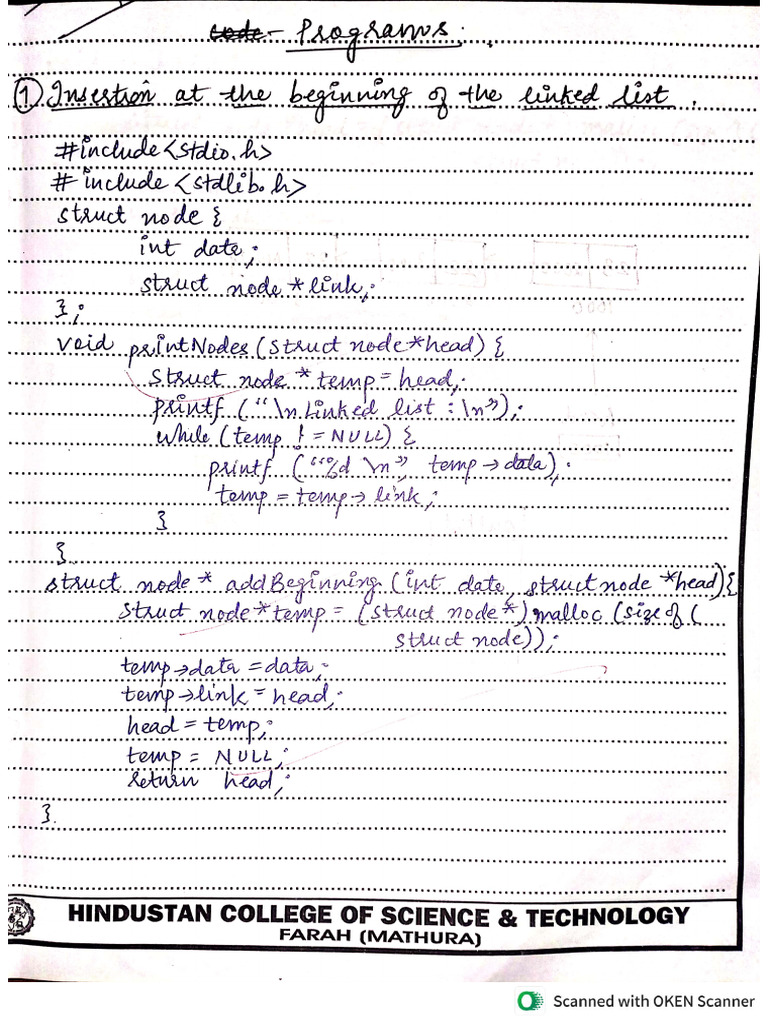 code - Programs.
① Insertion at the beginning of the linked list.
#include<stdio.h>
# include <stdlib.h>
struct node {
int data;
struct node *link;
};
void printNodes (struct node *head) {
struct node *temp = head;
printf ("\n Linked list : \n");
while (temp != NULL) {
printf ("%d \n", temp → data);
temp = temp → link;
}
}
struct node * addBeginning (int data, struct node *head) {
struct node *temp = (struct node *) malloc (size of (
struct node));
temp → data = data;
temp → link = head;
head = temp;
temp = NULL;
return head;
}
HINDUSTAN COLLEGE OF SCIENCE & TECHNOLOGY
FARAH (MATHURA)
Scanned with OKEN Scanner